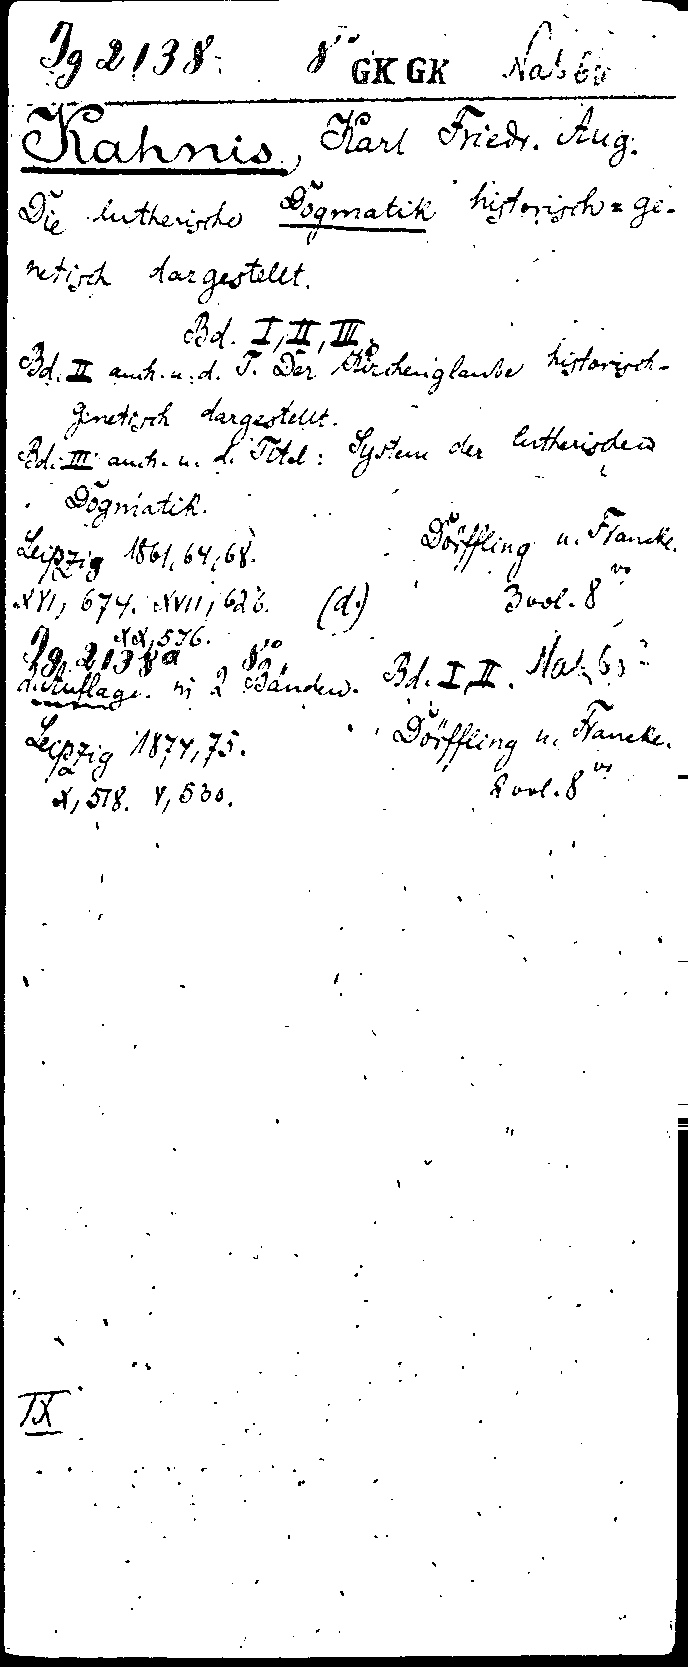 Jg 2138. 8vo GK GK
Kahnis, Karl Friedr. Aug.
Die lutherische Dogmatik historisch=ge-
netisch dargestellt.
Bd. I, II, III.
Bd. II auch. u. d. T. Der Kirchenglaube historisch-
genetisch dargestellt.
Bd. III auch. u. d. Titel: System der lutherischen
Dogmatik.
Leipzig 1861, 64, 68. Dörffling u. Francke.
XVI, 674. XVII, 626. (d.) 3 vol. 8vo
XX, 576.
Jg 2138a 8vo
2. Auflage. in 2 Bänden. Bd. I, II.
Leipzig 1874, 75. Dörffling u. Francke.
X, 518. V, 530. 2 vol. 8vo
IX